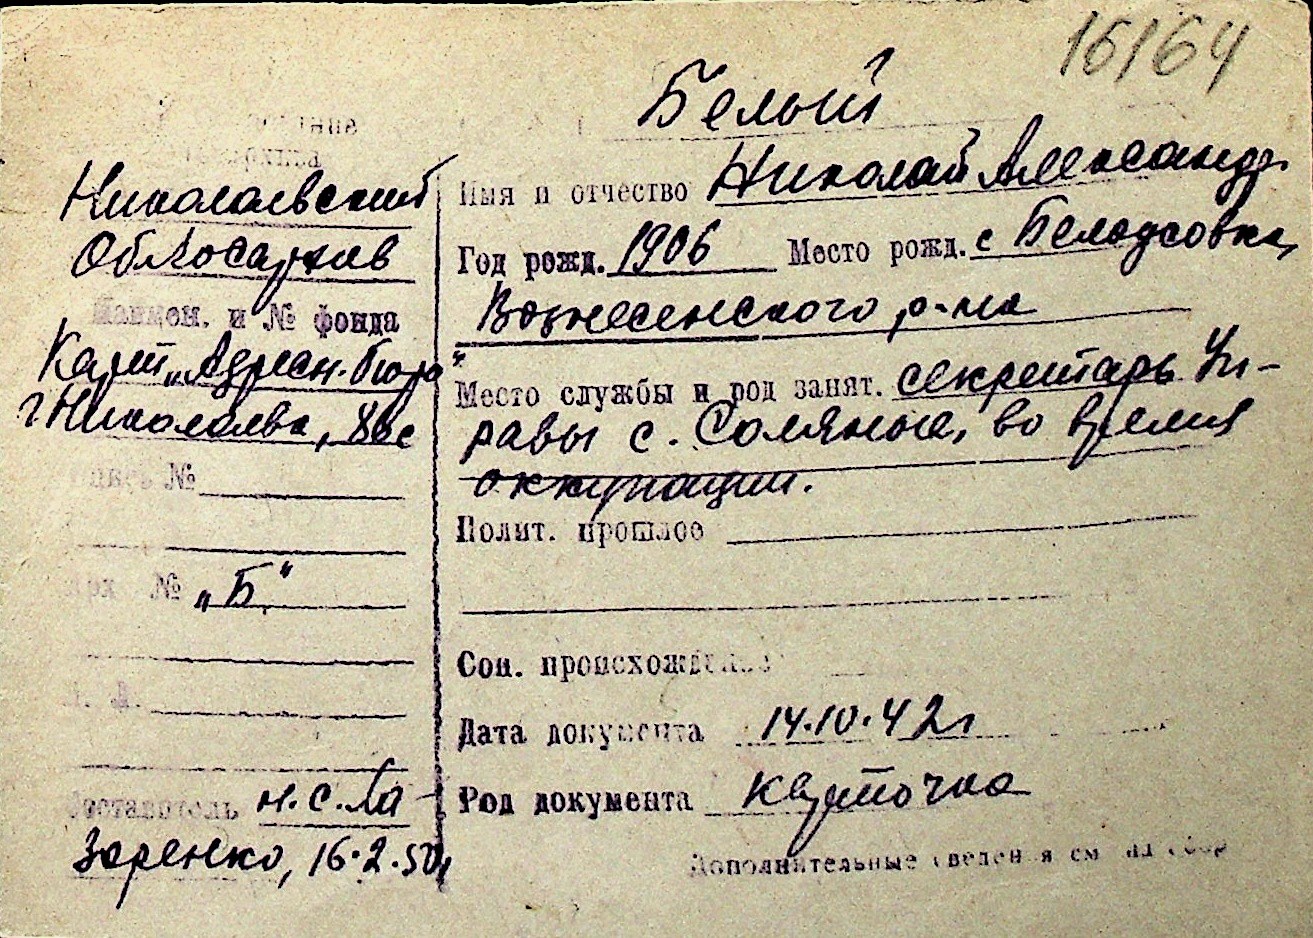 15164
Белый
Николаевский
Облгосархив
Наимен. и № фонда
Карт. „Адресн. бюро"
г Николаева,
№
№ „Б"
н. с. Ла-
заренко, 16.2.50г
Имя и отчество Николай Александр.
Год рожд. 1906 Место рожд. с Белоусовка,
Вознесенского р-на
Место службы и род занят. секретарь Уп-
равы с. Соляные, во время
оккупации.
Полит. прошлое
Соц. происхождение
Дата документа 14.10.42г
Род документа карточка
Дополнительные сведения см на обор